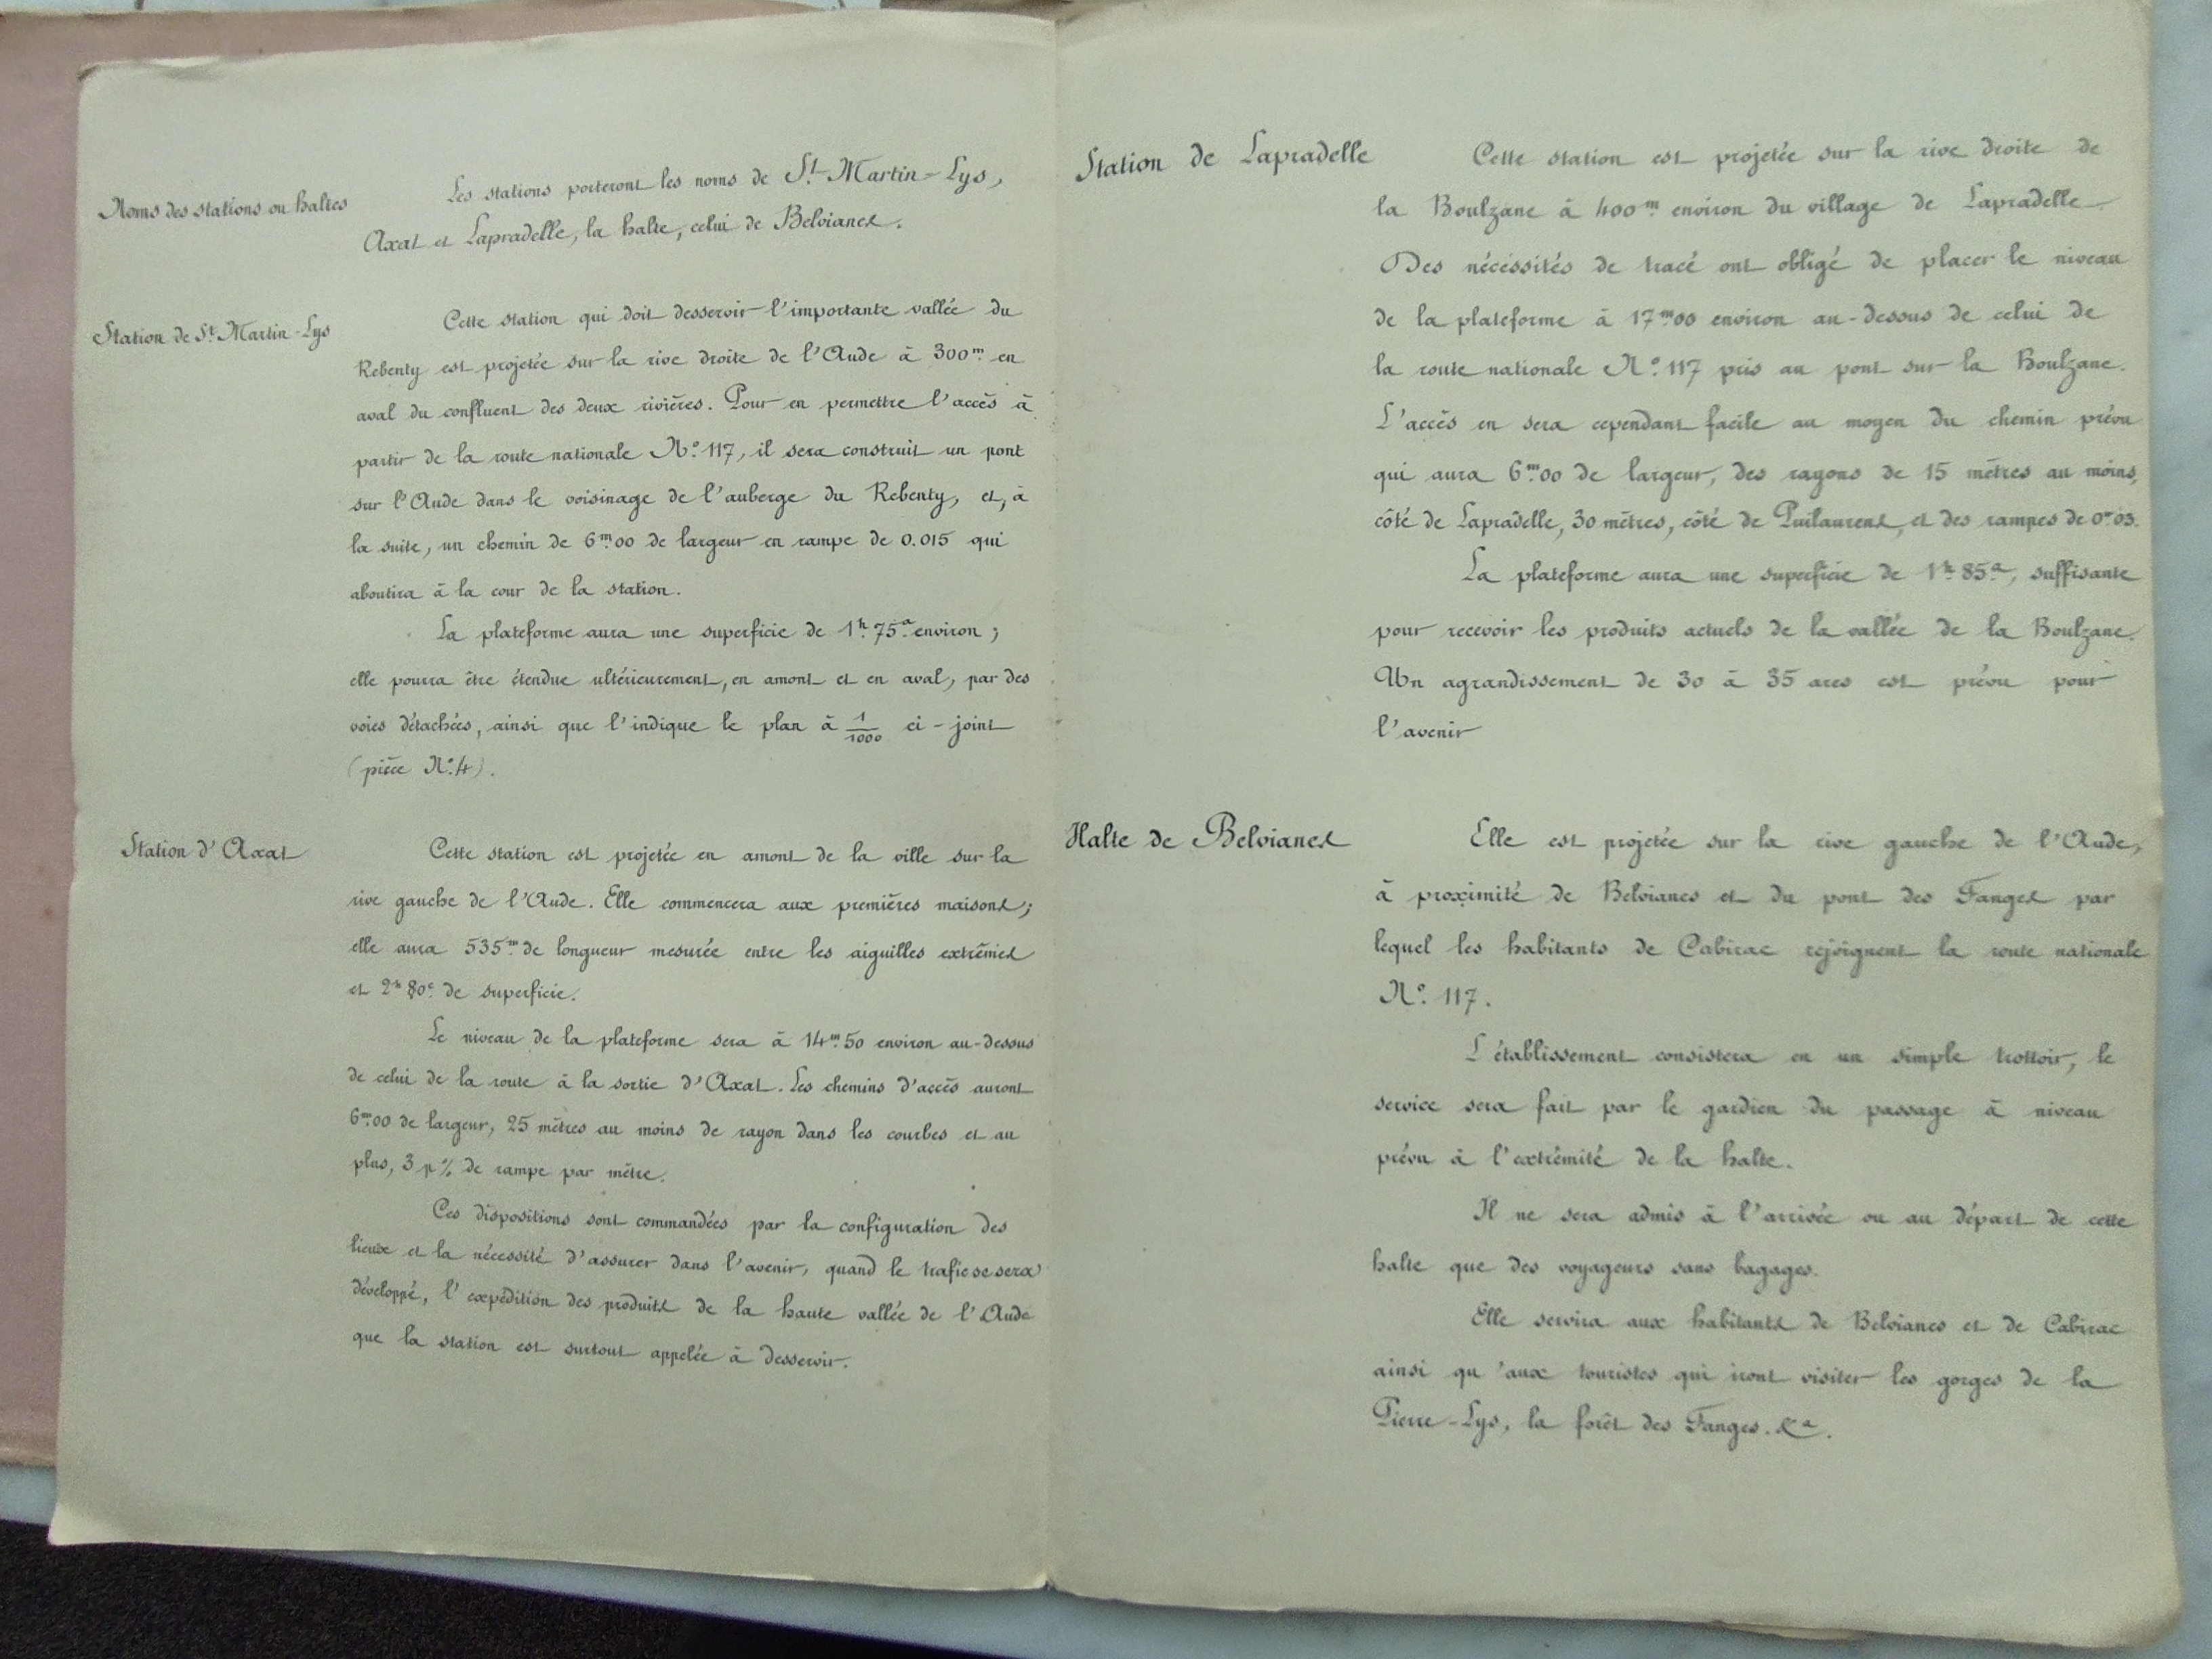 Noms des stations ou haltes
Les stations porteront les noms de St Martin-Lys,
Axat et Lapradelle, la halte, celui de Belvianes.
Station de St Martin-Lys
Cette station qui doit desservir l'importante vallée du
Rebenty est projetée sur la rive droite de l'Aude à 300m en
aval du confluent des deux rivières. Pour en permettre l'accès à
partir de la route nationale No 117, il sera construit un pont
sur l'Aude dans le voisinage de l'auberge du Rebenty, et, à
la suite, un chemin de 6m00 de largeur en rampe de 0.015 qui
aboutira à la cour de la station.
La plateforme aura une superficie de 1h 75a environ ;
elle pourra être étendue ultérieurement, en amont et en aval, par des
voies détachées, ainsi que l'indique le plan à 1/1000 ci-joint
(pièce No 4).
Station d'Axat
Cette station est projetée en amont de la ville sur la
rive gauche de l'Aude. Elle commencera aux premières maisons;
elle aura 535m de longueur mesurée entre les aiguilles extrêmes
et 2h 80c de superficie.
Le niveau de la plateforme sera à 14m50 environ au-dessus
de celui de la route à la sortie d'Axat. Les chemins d'accès auront
6m00 de largeur, 25 mètres au moins de rayon dans les courbes et au
plus, 3 p% de rampe par mètre.
Ces dispositions sont commandées par la configuration des
lieux et la nécessité d'assurer dans l'avenir, quand le trafic se sera
développé, l'expédition des produits de la haute vallée de l'Aude
que la station est surtout appelée à desservir.
Station de Lapradelle
Cette station est projetée sur la rive droite de
la Boulzane à 400m environ du village de Lapradelle.
Des nécéssités de tracé ont obligé de placer le niveau
de la plateforme à 17m00 environ au-dessus de celui de
la route nationale No 117 pris au pont sur la Boulzane.
L'accès en sera cependant facile au moyen du chemin prévu
qui aura 6m00 de largeur, des rayons de 15 mètres au moins,
côté de Lapradelle, 30 mètres, côté de Puilaurens, et des rampes de 0m03.
La plateforme aura une superficie de 1h 85a, suffisante
pour recevoir les produits actuels de la vallée de la Boulzane.
Un agrandissement de 30 à 35 ares est prévu pour
l'avenir
Halte de Belvianes
Elle est projetée sur la rive gauche de l'Aude,
à proximité de Belvianes et du pont des Fanges par
lequel les habitants de Cabirac rejoignent la route nationale
No 117.
L'établissement consistera en un simple trottoir, le
service sera fait par le gardien du passage à niveau
prévu à l'extrémité de la halte.
Il ne sera admis à l'arrivée ou au départ de cette
halte que des voyageurs sans bagages.
Elle servira aux habitants de Belvianes et de Cabirac
ainsi qu'aux touristes qui iront visiter les gorges de la
Pierre-Lys, la forêt des Fanges. &a.